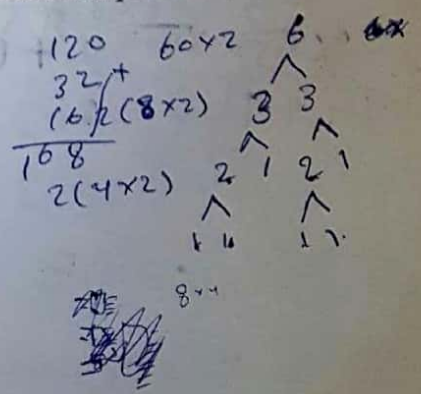 120 60×2 6
32 +
16 2(8×2) 3 3
168
2(4×2) 2 1 2 1
1 1 1 1
8×4